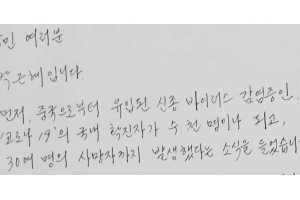 국민 여러분
박근혜입니다.
먼저, 중국으로부터 유입된 신종 바이러스 감염증인
'코로나 19'의 국내 확진자가 수 천 명이나 되고,
30여 명의 사망자까지 발생했다는 소식을 들었습니다